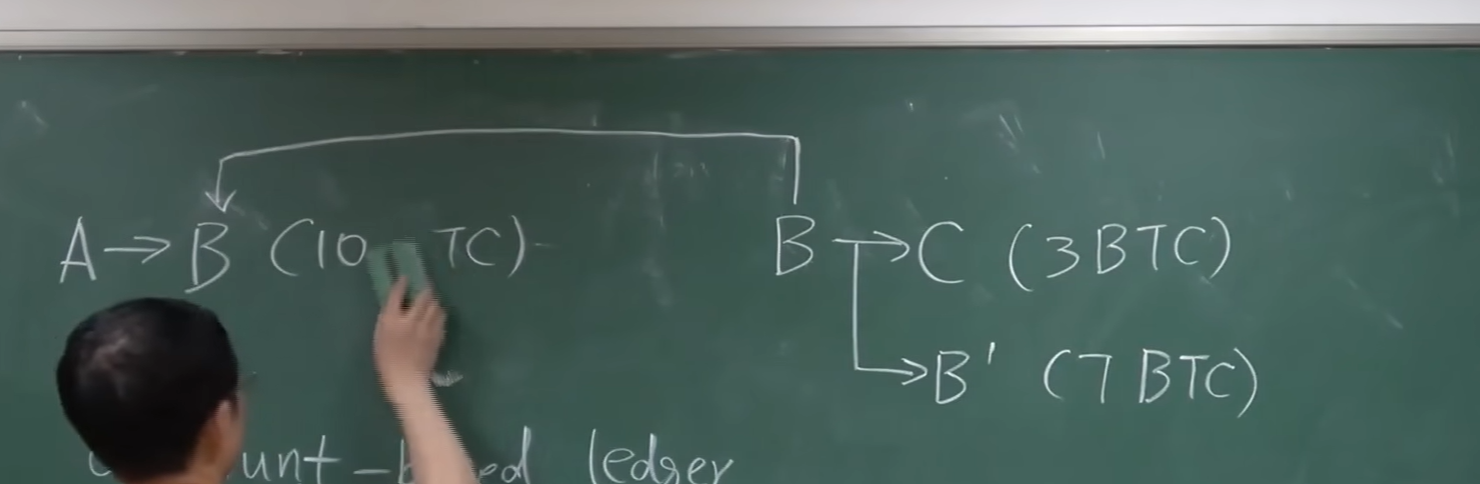 A → B (10 TC) B → C (3 BTC)
→ B' (7 BTC)
ledger